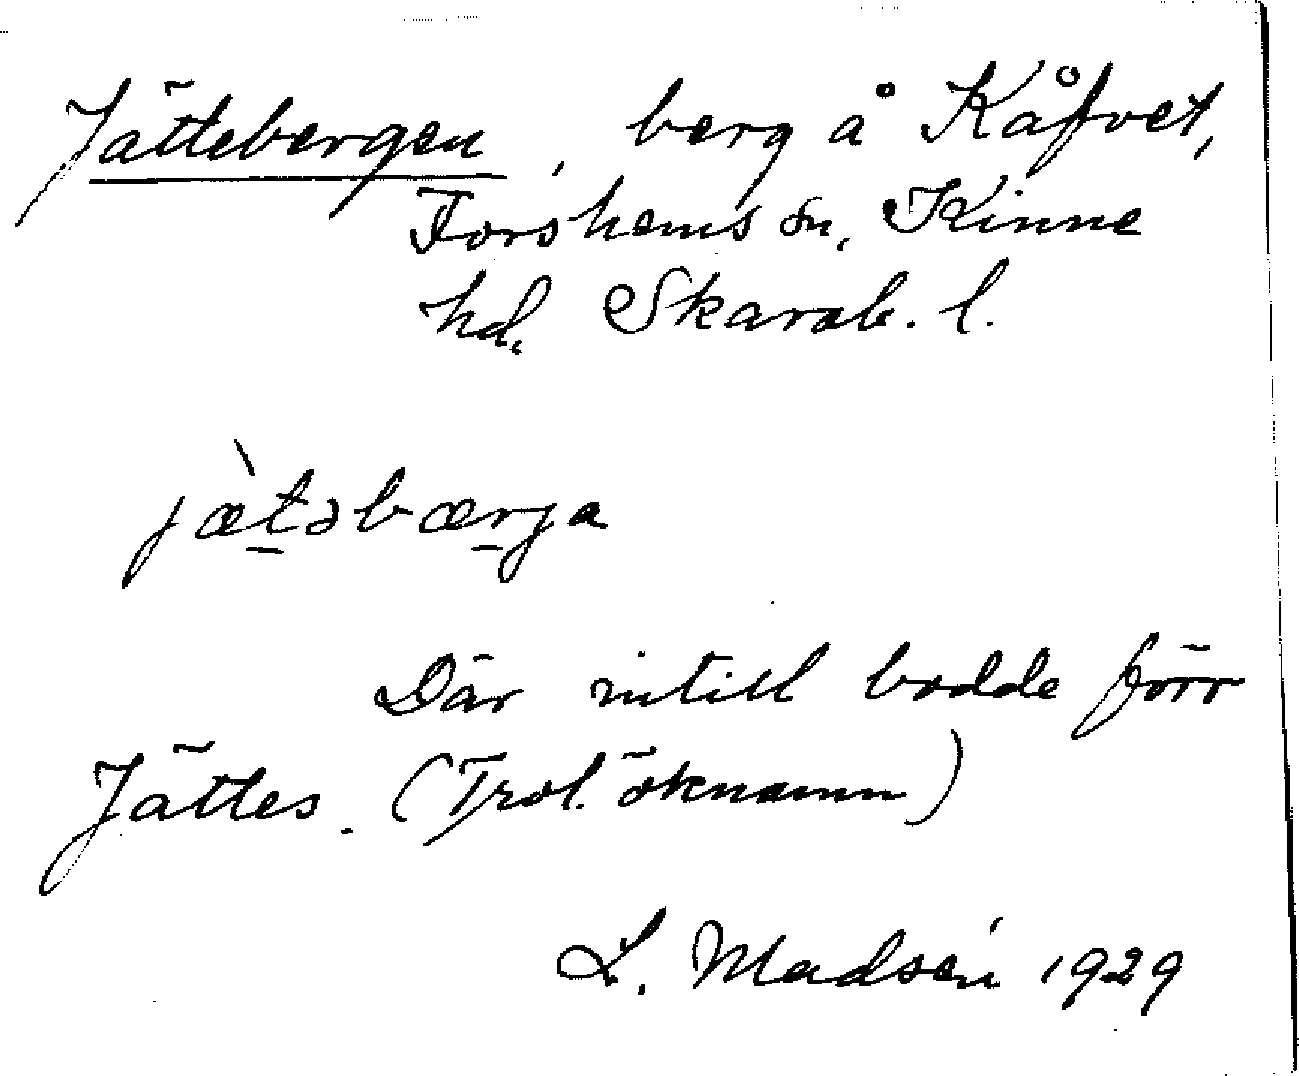 Jättebergen, berg å Kåfvet,
Forshems sn, Kinne
hd, Skarab. l.
jæ̀t̠əbær̠ja
Där intill bodde förr
Jättes. (Trol. öknamn)
L. Madsén 1929